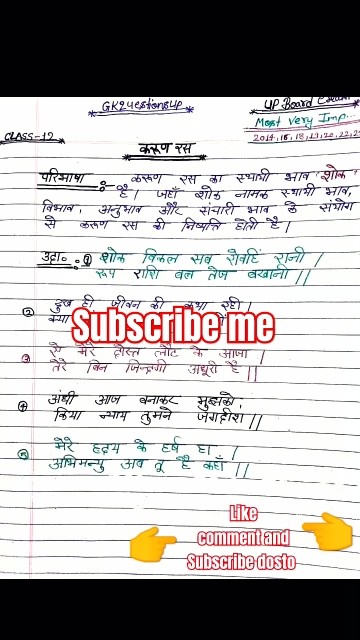 GK2uestionsup
UP Board Exam
Most Very Imp...
CLASS-12
2014, 15, 18, 19, 20, 22, 23
करूण रस
परिभाषा :- करूण रस का स्थायी भाव "शोक"
है। जहाँ शोक नामक स्थायी भाव,
विभाव, अनुभाव और संचारी भाव के संयोग
से करूण रस की निष्पत्ति होती है।
उदा०- ① शोक विकल सब रोवहिं रानी।
रूप राशि बल तेज बखानी।।
② दुख ही जीवन की कथा रही।
क्या
Subscribe me
③ ऐ मेरे दोस्त लौट के आजा।
तेरे बिन जिन्दगी अधूरी है।।
④ अंधी आज बनाकर मुझको,
किया न्याय तुमने जगदीश।।
⑤ मेरे हृदय के हर्ष हा।
अभिमन्यु अब तू है कहाँ।।
Like
comment and
Subscribe dosto